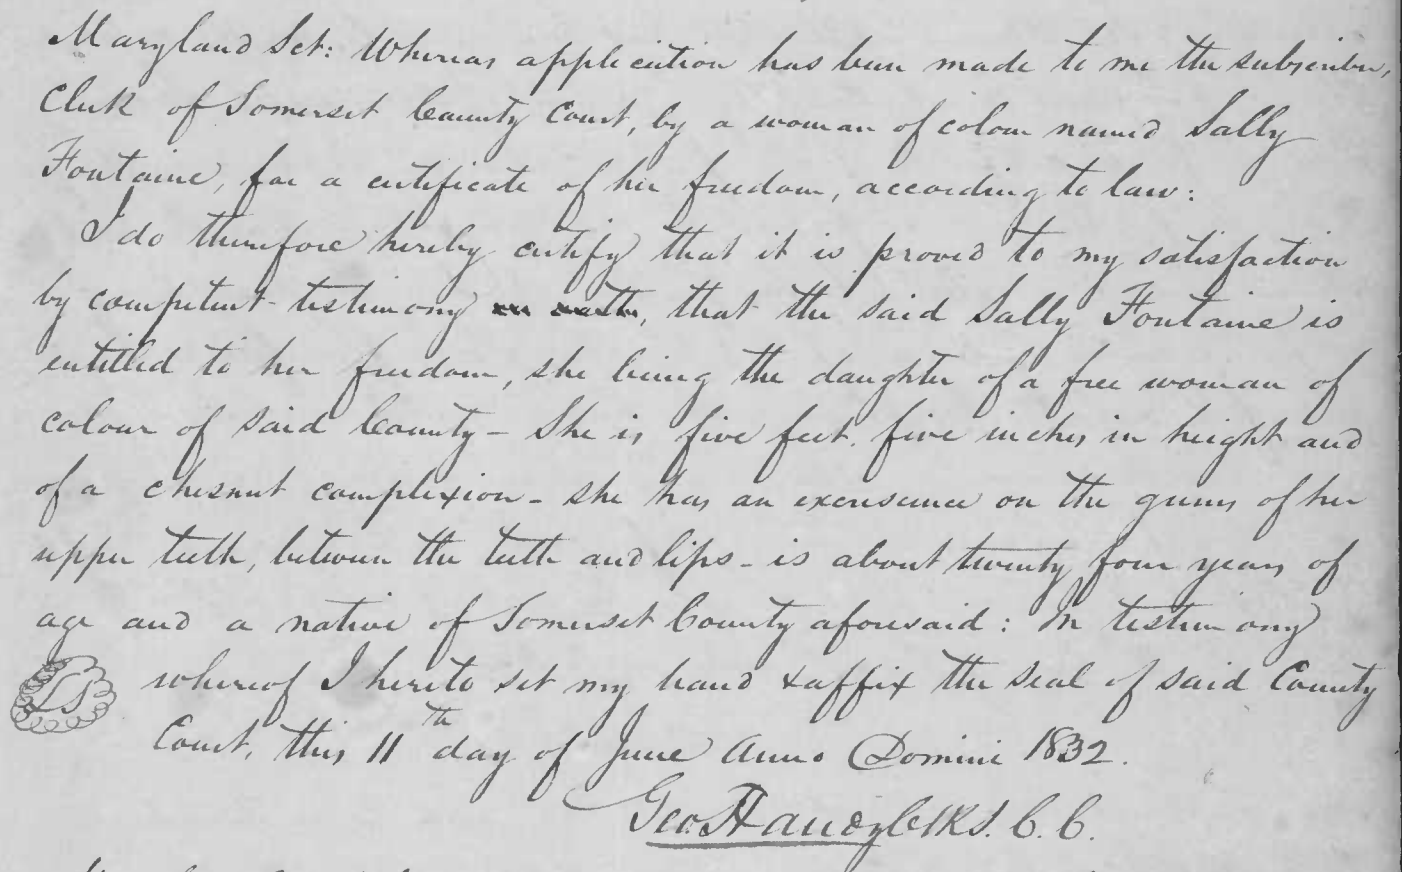 Maryland Sct: Whereas application has been made to me the subscriber,
Clerk of Somerset County Court, by a woman of colour named Sally
Fontaine, for a certificate of her freedom, according to law:
I do therefore hereby certify that it is proved to my satisfaction
by competent testimony on oath, that the said Sally Fontaine is
entitled to her freedom, she being the daughter of a free woman of
colour of said County - She is five feet. five inches in height and
of a chesnut complexion - she has an excrescence on the gums of her
upper teeth, between the teeth and lips - is about twenty four years of
age and a native of Somerset County aforesaid: In testimony
LS whereof I hereto set my hand & affix the seal of said County
Court, this 11th day of June Anno Domini 1832.
Geo: Handy Clk S. C. C.